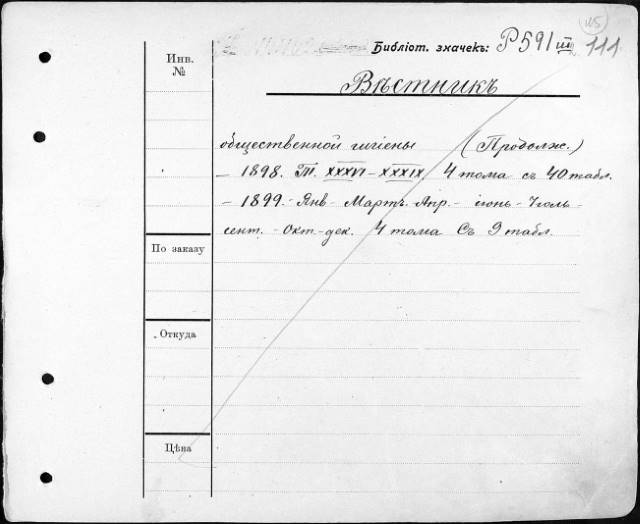 115
Библіот. значекъ: P591 III 111.
Инв.
№
Вѣстникъ
общественной гигіены (Продолж.)
– 1898. Т. XXXVI – XXXIX. 4 тома съ 40 табл.
– 1899. - Янв - Мартъ. Апр. - іюнь - Іюль -
сент. - Окт - дек. 4 тома Съ 9 табл.
По заказу
Откуда
Цѣна